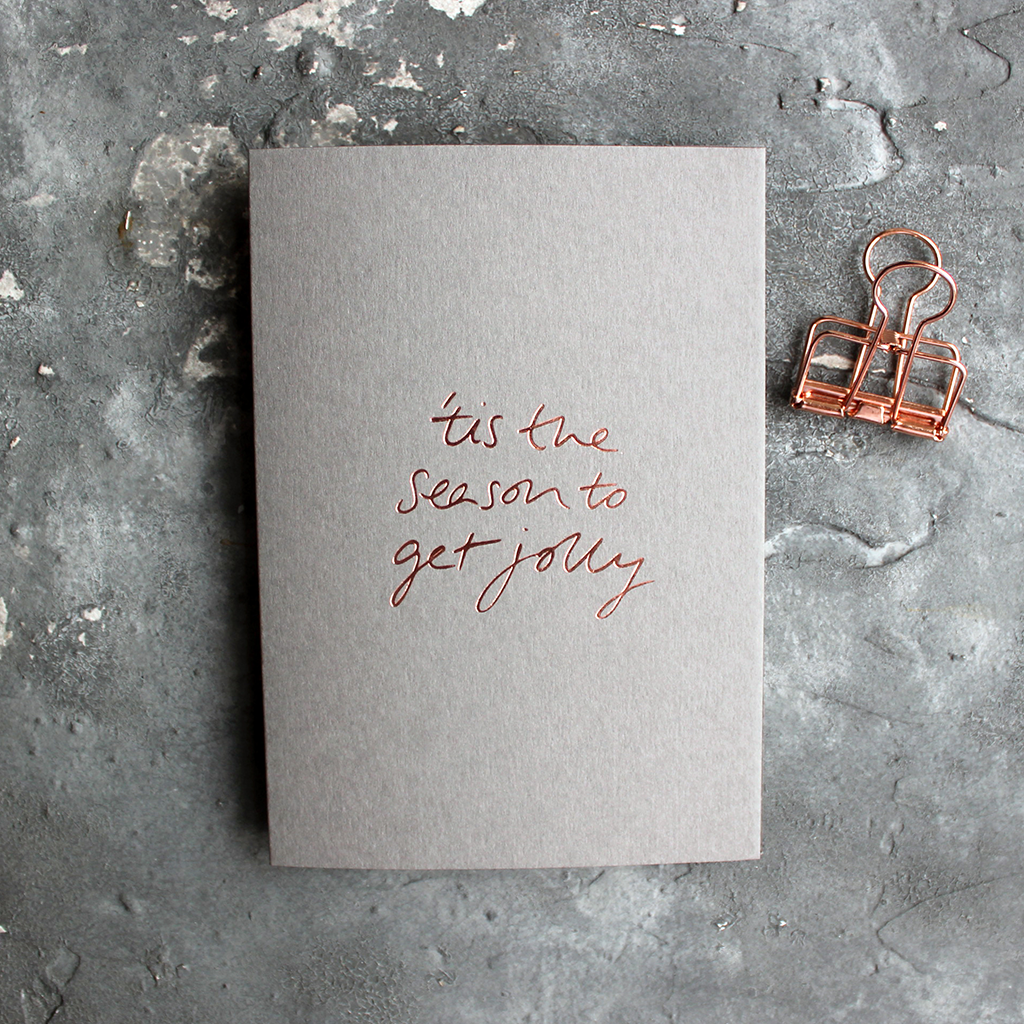 'tis the
season to
get jolly